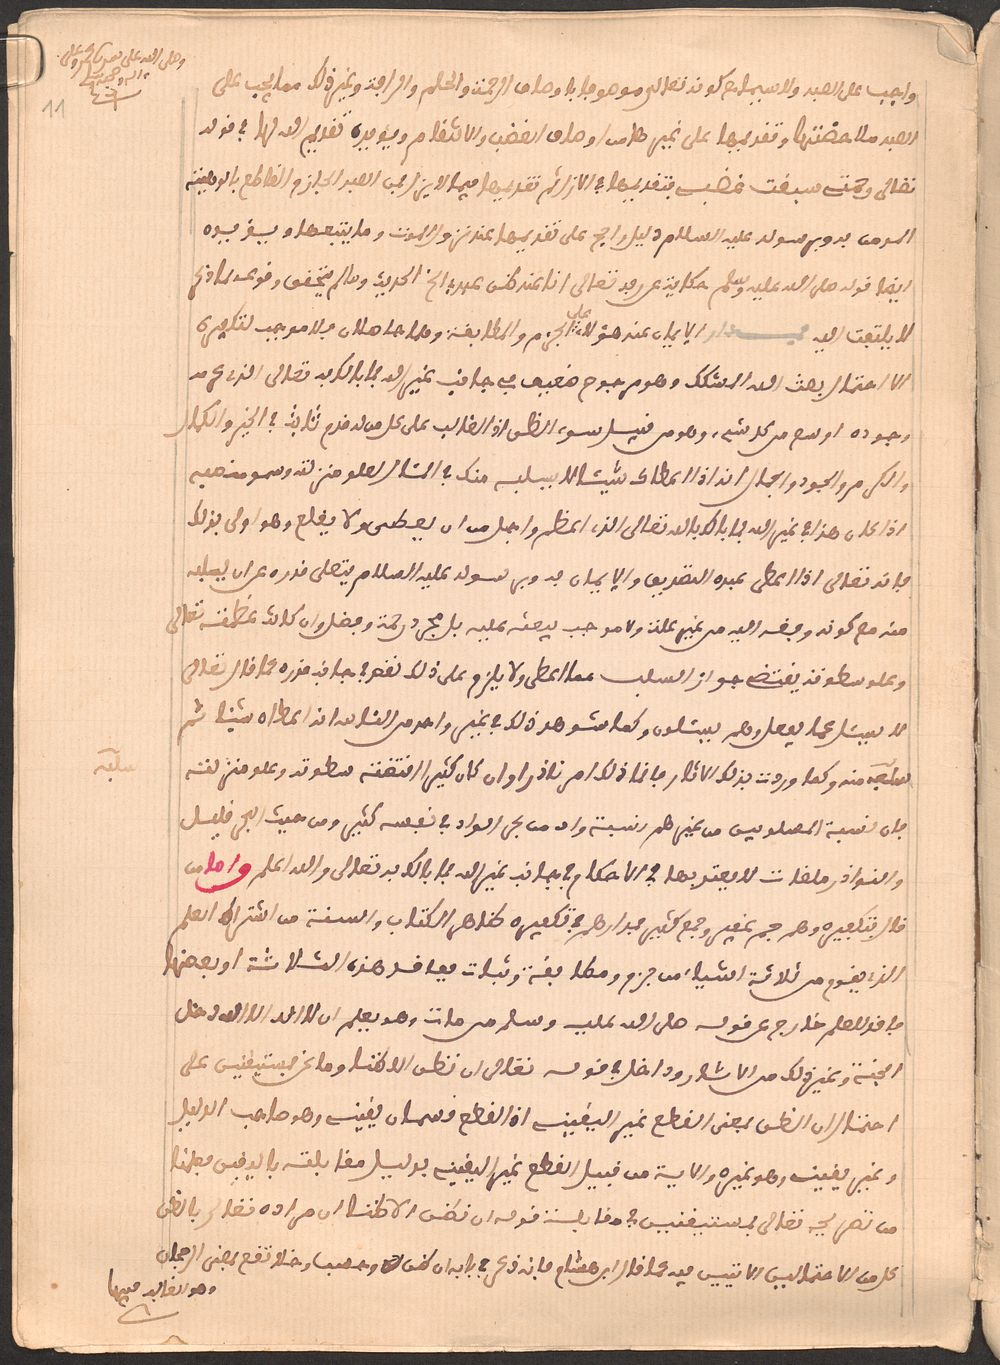 وصلى الله على سيدنا محمد وعلى
آله وصحبه
11
واجب على العبد ولا سيما مع كونه تعالى موصوفا باوصاف الرحمة والحلم والرافة وغير ذلك مما يجب على
العبد ملاحظتها وتقديمها على غيرها من اوصاف الغضب والانتقام ويؤيده تقديم الله لها في قوله
تعالى رحمتي سبقت غضبي فتقديمها في الازل ثم تقديمها فيما لا يزال من العبد الجازم القاطع بالوهيته
المومن به وبرسوله عليه السلام دليل راجح على تقديمها عند الموت وما يتبعها ويؤيده
ايضا قوله صلى الله عليه وسلم حكاية عن ربه تعالى انا عند ظن عبدي الخ الحديث وما لم يتحقق وقوعه
لا يلتفت اليه الايمان عند هؤلاء على الجزم والمطابقة وهما حاصلان ولا موجب لتكفيره
الا احتمال بعث الله المشكك وهو مرجوح ضعيف في جانب غير الله فما بالك به تعالى الذي
وجوده اوسع من كل شيء وهو من قبيل سوء الظن اذ الغالب على كل من له قدم ثابت في الخير والكمال
والكرم والجود والجمال انه اذا اعطاك شيئا لا يسلبه منك في المثال لعلو منزلته وسمو منصبه
اذا كان هذا في غير الله فما بالك بالله تعالى الذي اعظم واجل من ان يعطي ولا يقلع وهو اولى بذلك
فانه تعالى اذا اعطى عبده التصديق والايمان به وبرسوله عليه السلام يتعلى قدره عن ان يسلبه
منه مع كونه وفقه اليه من غير علة ولا موجب يبعثه عليه بل مجرد رحمة وفضل وان كانت عظمته تعالى
وعلو سطوته يقتضي جواز السلب مما اعطى ولا يلزم على ذلك نقص في جانب قدره كما قال تعالى
لا يسئل عما يفعل وهم يسئلون وكما شوهد ذلك في غير واحد من الناس انه اعطاه شيئا ثم
سلبه
سلبه منه وكما وردت بذلك الاثار فانما ذلك امر نادر وان كان كثيرا اقتضته سطوته وعلو منزلته
فان نسبة المسلوبين من غيرهم نسبة واد من بحر الواد في نفسه كثير ومن حيث البحر قليل
والنوادر ملغات لا يعتد بها في الاحكام في جانب غير الله فما بالك به تعالى والله اعلم واما من
قال بتكفيره وهم جم غفير وجمع كثير فمدارهم في تكفيره ظاهر الكتاب والسنة من اشتراط العلم
الذي يقوم من ثلاثة اشياء من جزم ومطابقة وثبات فعاقد هذه الثلاثة او بعضها
فاقد للعلم خارج عن قوله صلى الله عليه وسلم من مات وهو يعلم ان لا اله الا الله دخل
الجنة وغير ذلك من الاثار وداخل في قوله تعالى ان نظن الا ظنا وما نحن بمستيقنين على
احتمال ان الظن بمعنى القطع غير اليقين اذ القطع قسمان يقين وهو صاحب الدليل
وغير يقين وهو غيره والاية من قبيل القطع غير اليقين بدليل مقابلته باليقين فعلمنا
من تصريحه تعالى بمستيقنين في مقابلة قوله ان نظن الا ظنا ان مراده تعالى بالظن
كل من الاحتمالين الاتيين فيه كما قال ابن هشام فانه ذكر في باب ان ظن وحسب وخال تقع بمعنى الرجحان
وهو الغالب فيها